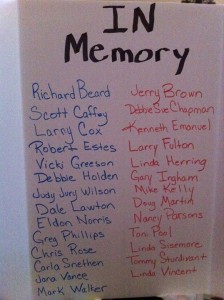 IN
Memory
Richard Beard
Scott Caffey
Larry Cox
Robert Estes
Vicki Greeson
Debbie Holden
Judy Jury Wilson
Dale Lawton
Eldon Norris
Greg Phillips
Chris Rose
Carla Snethen
Jana Vance
Mark Walker
Jerry Brown
Debbie Sue Chapman
Kenneth Emanuel
Larry Fulton
Linda Herring
Gary Ingham
Mike Kelly
Doug Martin
Nancy Parsons
Tom Pool
Linda Sisemore
Tommy Sturdivant
Linda Vincent